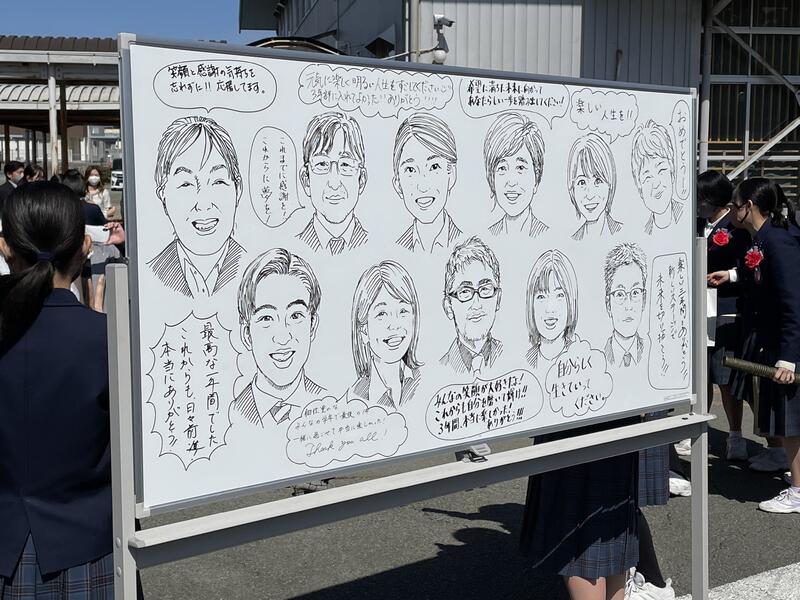 笑顔と感謝の気持ちを
忘れずに!! 応援してます。
元気に楽しく明るい人生をすごしてください
3年部に入れてよかった!! ありがとう!!!!
希望に満ちた未来に向かって
あなたらしい一歩を踏み出してください!
楽しい人生を!!
おめでとう!
これまでに感謝を!
これからに夢を!
最高な一年間でした
これからも、日々前進
本当にありがとう!
一緒に過ごせて本当に楽しかった!
Thank you all!
みんなの笑顔が大好きだよ!
これからも自分を磨いて輝け!!
3年間、本当に楽しかった!
ありがとう!!!
自分らしく
生きていって
ください。
楽しい三年間をありがとう。
新しいステージで